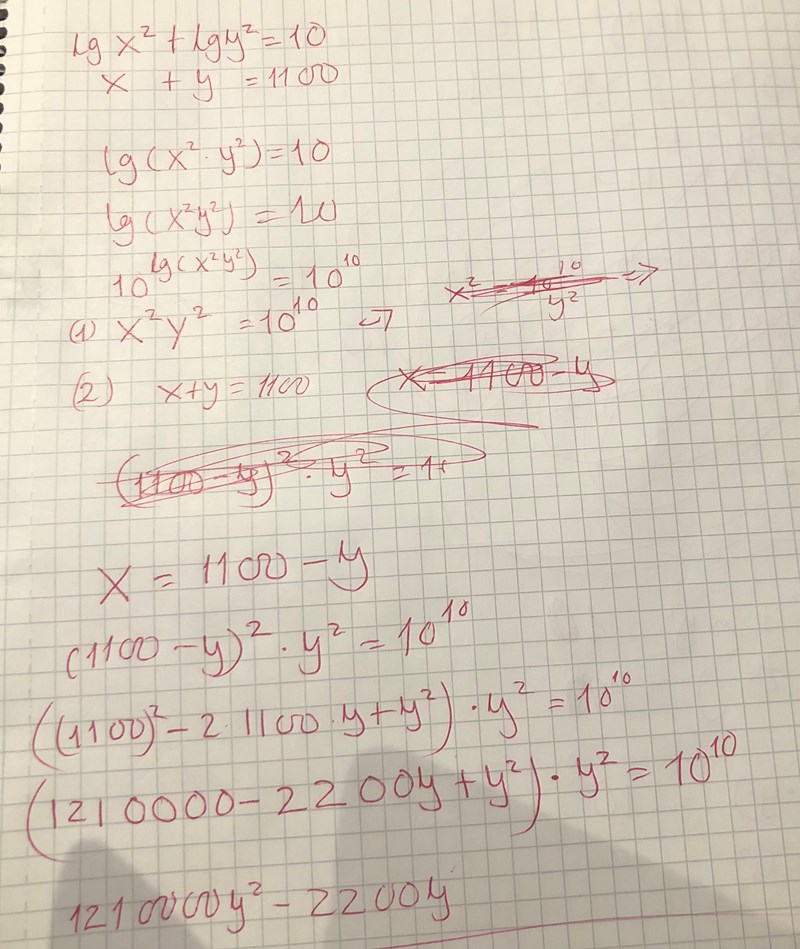 lg x² + lg y² = 10
x + y = 1100
lg(x² · y²) = 10
lg(x²y²) = 10
10^lg(x²y²) = 10^10
x² = 10^10/y² =>
(1) x²y² = 10^10 =>
(2) x+y = 1100
x = 1100 - y
(1100 - y)² · y² = 1
x = 1100 - y
(1100 - y)² · y² = 10^10
((1100)² - 2·1100·y + y²) · y² = 10^10
(1210000 - 2200y + y²) · y² = 10^10
1210000y² - 2200y